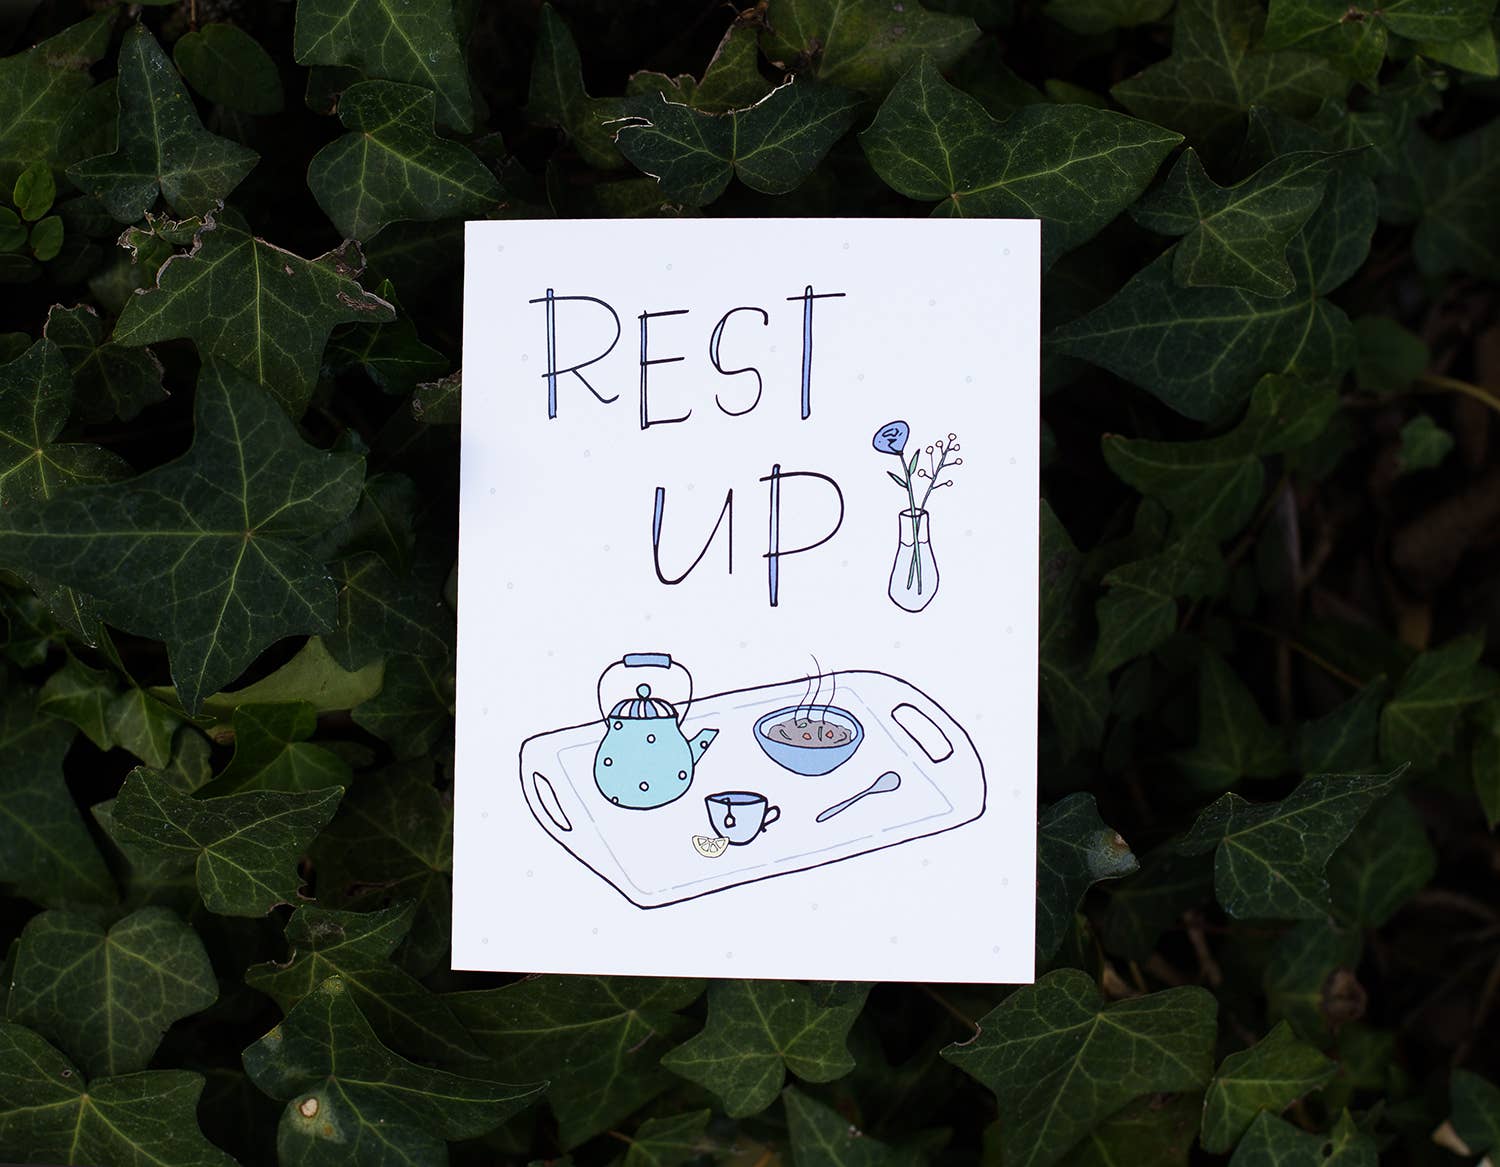 REST
UP